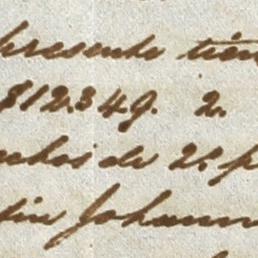 presente tien
$12.349. 2.
echos de 2ª p
tin Johann